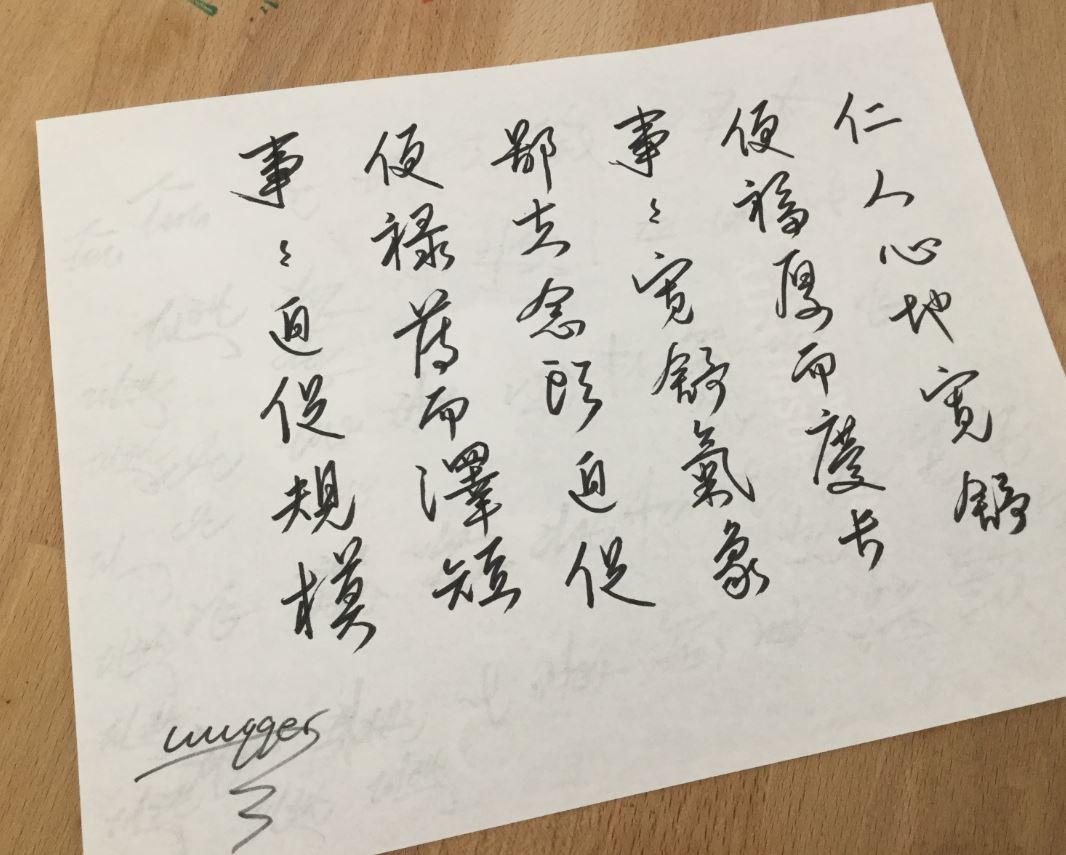 仁人心地寬舒
便福厚而慶长
事々寬舒氣象
鄙夫念頭迫促
便祿薄而澤短
事々迫促規模